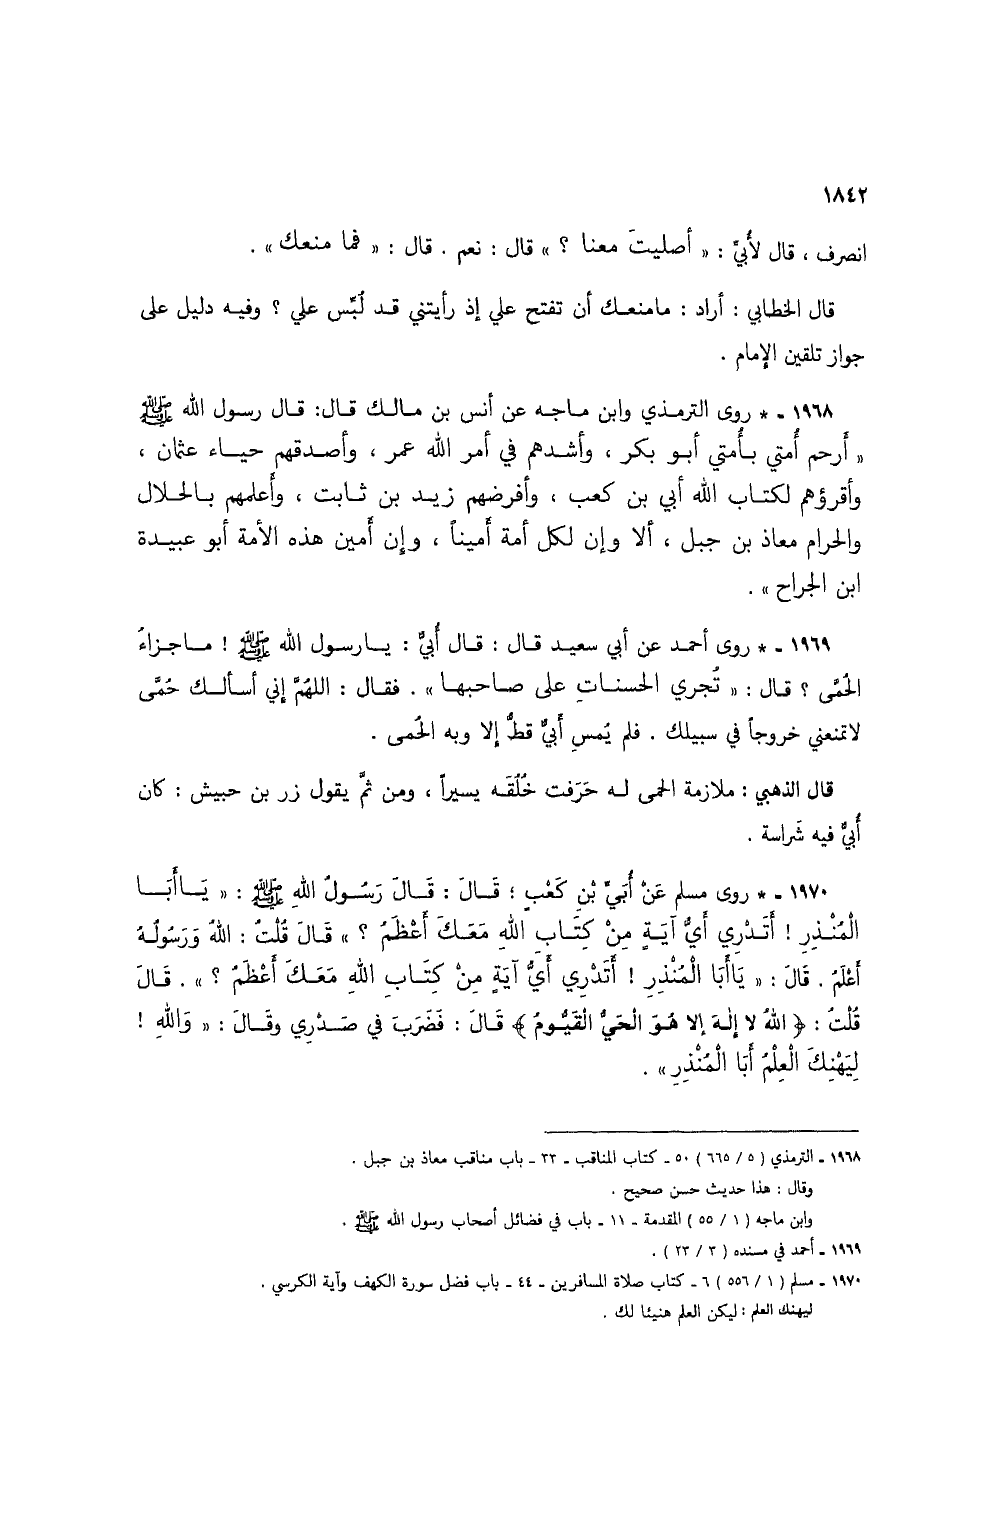 ١٨٤٢
انصرف ، قال لأُبيٍّ : « أصليتَ معنا ؟ » قال : نعم . قال : « فما منعك » .
قال الخطابي : أراد : مامنعـك أن تفتح علي إذ رأيتني قـد لُبِّس علي ؟ وفيـه دليل على
جواز تلقين الإمام .
١٩٦٨ ـ * روى الترمـذي وابن ماجـه عن أنس بن مالـك قال: قال رسول الله ﷺ
« أرحم أُمتي بـأُمتي أبـو بكر ، وأشـدهم في أمر الله عمر ، وأصـدقهم حيـاء عثمان ،
وأقرؤهم لكتـاب الله أبي بن كعب ، وأفرضهم زيـد بن ثـابت ، وأعلمهم بـالحـلال
والحرام معاذ بن جبل ، ألا وإن لكل أمة أميناً ، وإن أمين هذه الأمة أبو عبيـدة
ابن الجراح » .
١٩٦٩ ـ * روى أحمـد عن أبي سعيـد قـال : قـال أُبيٌّ : يـارسـول الله ﷺ ! مـاجـزاءُ
الحُمَّى ؟ قـال : « تُجري الحسنـاتِ على صـاحبهـا » . فقـال : اللهُمَّ إني أسـألـك حُمَّى
لاتمنعني خروجاً في سبيلك . فلم يُمسِ أُبيٌّ قطُّ إلا وبه الحُمى .
قال الذهبي : ملازمة الحمى لـه حَرَفت خُلُقَـه يسيراً ، ومن ثمَّ يقول زر بن حبيش : كان
أُبيٌّ فيه شَراسة .
١٩٧٠ ـ * روى مسلم عَنْ أُبَيِّ بْنِ كَعْبٍ ؛ قَـالَ : قَـالَ رَسُـولُ اللهِ ﷺ : « يَـاأَبَـا
الْمُنْـذِرِ ! أَتَـدْرِي أَيُّ آيَـةٍ مِنْ كِتَـابِ اللهِ مَعَـكَ أَعْظَمُ ؟ » قَـالَ قُلْتُ : اللهُ وَرَسُولُـهُ
أَعْلَمُ . قَالَ : « يَاأَبَا الْمُنْذِرِ ! أَتَدْرِي أَيُّ آيَةٍ مِنْ كِتَـابِ اللهِ مَعَـكَ أَعْظَمُ ؟ » . قَـالَ
قُلْتُ : ﴿ اللهُ لا إِلٰهَ إلا هُـوَ الْحَيُّ الْقَيُّومُ ﴾ قَـالَ : فَضَرَبَ فِي صَـدْرِي وقَـالَ : « وَاللهِ !
لِيَهْنِكَ الْعِلْمُ أَبَا الْمُنْذِرِ » .
١٩٦٨ ـ الترمذي ( ٥ / ٦٦٥ ) ٥٠ ـ كتاب المناقب ـ ٣٣ ـ باب مناقب معاذ بن جبل .
وقال : هذا حديث حسن صحيح .
وابن ماجه ( ١ / ٥٥ ) المقدمة ـ ١١ ـ باب في فضائل أصحاب رسول الله ﷺ .
١٩٦٩ ـ أحمد في مسنده ( ٣ / ٢٣ ) .
١٩٧٠ ـ مسلم ( ١ / ٥٥٦ ) ٦ ـ كتاب صلاة المسافرين ـ ٤٤ ـ باب فضل سورة الكهف وآية الكرسي .
ليهنك العلم : ليكن العلم هنيئا لك .